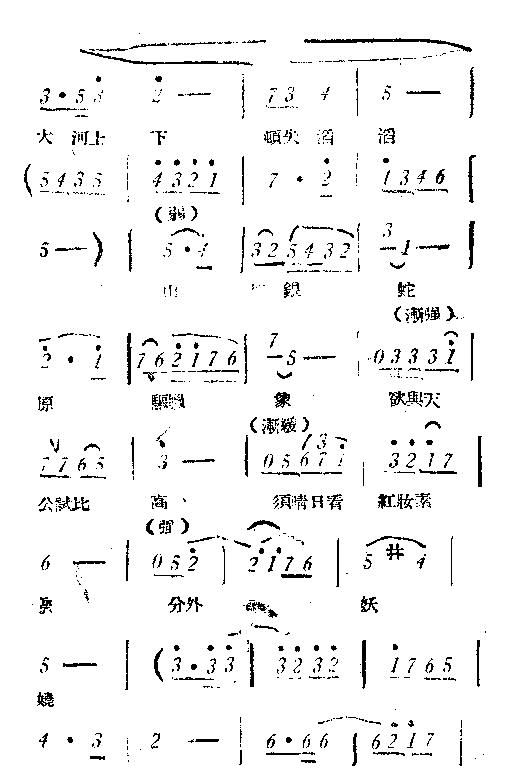 3·5 3 | 2 — | 7 3 4 | 5 — |
大 河上 下 頓失 滔 滔
( 5 4 3 5 | 4 3 2 1 | 7 · 2 | 1 3 4 6 |
(弱)
5 — ) | 5·4 | 3 2 5 4 3 2 | 3 1 — |
山 銀 蛇
(漸强)
2 · 1 | 7 6 2 1 7 6 | 7 5 — | 0 3 3 3 1 |
原 象 欲與天
(漸緩)
7 7 6 5 | 3 — | 0 5 6 7 1 | 3 2 1 7 |
公試比 高、 須晴日看 紅妝素
6 — | 0 5 2 | 2 1 7 6 | 5 # 4 |
裹 分外 妖
5 — | ( 3·3 3 | 3 2 3 2 | 1 7 6 5 |
嬈
4 · 3 | 2 — | 6·6 6 | 6 2 1 7 |